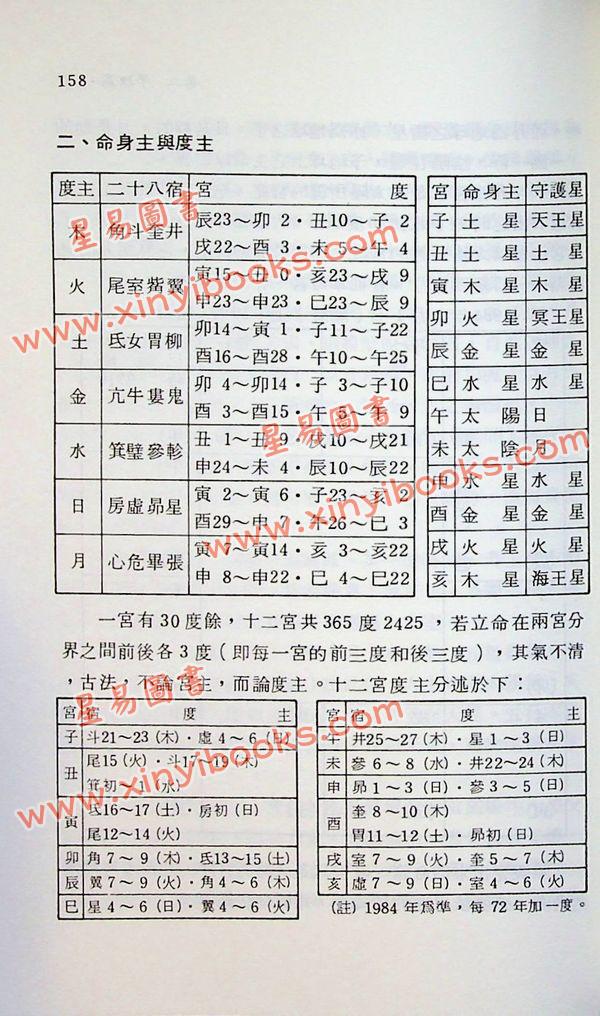 158
二、命身主與度主
度主 二十八宿 宮 度
木 角斗奎井 辰23～卯 2·丑10～子 2
戌22～酉 3·未 5～午 4
火 尾室觜翼 寅15～丑 0·亥23～戌 9
申23～申23·巳23～辰 9
土 氐女胃柳 卯14～寅 1·子11～子22
酉16～酉28·午10～午25
金 亢牛婁鬼 卯 4～卯14·子 3～子10
酉 3～酉15·午 5～午 9
水 箕璧參軫 丑 1～丑 9·戌10～戌21
申24～未 4·辰10～辰22
日 房虛昴星 寅 2～寅 6·子23～亥 2
酉29～申 7·午26～巳 3
月 心危畢張 寅 7～寅14·亥 3～亥22
申 8～申22·巳 4～巳22
宮 命身主 守護星
子 土星 天王星
丑 土星 土星
寅 木星 木星
卯 火星 冥王星
辰 金星 金星
巳 水星 水星
午 太陽 日
未 太陰 月
申 水星 水星
酉 金星 金星
戌 火星 火星
亥 木星 海王星
一宮有30度餘，十二宮共365度2425，若立命在兩宮分
界之間前後各3度（即每一宮的前三度和後三度），其氣不清
，古法，不論宮主，而論度主。十二宮度主分述於下：
宮 宿 度 主
子 斗21～23（木）·虛4～6（日）
丑 尾15（火）·斗17～19（木）
箕初～1（水）
寅 氐16～17（土）·房初（日）
尾12～14（火）
卯 角7～9（木）·氐13～15（土）
辰 翼7～9（火）·角4～6（木）
巳 星4～6（日）·翼4～6（火）
宮 宿 度 主
午 井25～27（木）·星1～3（日）
未 參6～8（水）·井22～24（木）
申 昴1～3（日）·參3～5（日）
酉 奎8～10（木）
胃11～12（土）·昴初（日）
戌 室7～9（火）·奎5～7（木）
亥 虛7～9（日）·室4～6（火）
(註) 1984年爲準，每72年加一度。
星易圖書
www.xinyibooks.com
星易圖書
www.xinyibooks.com
星易圖書
www.xinyibooks.com